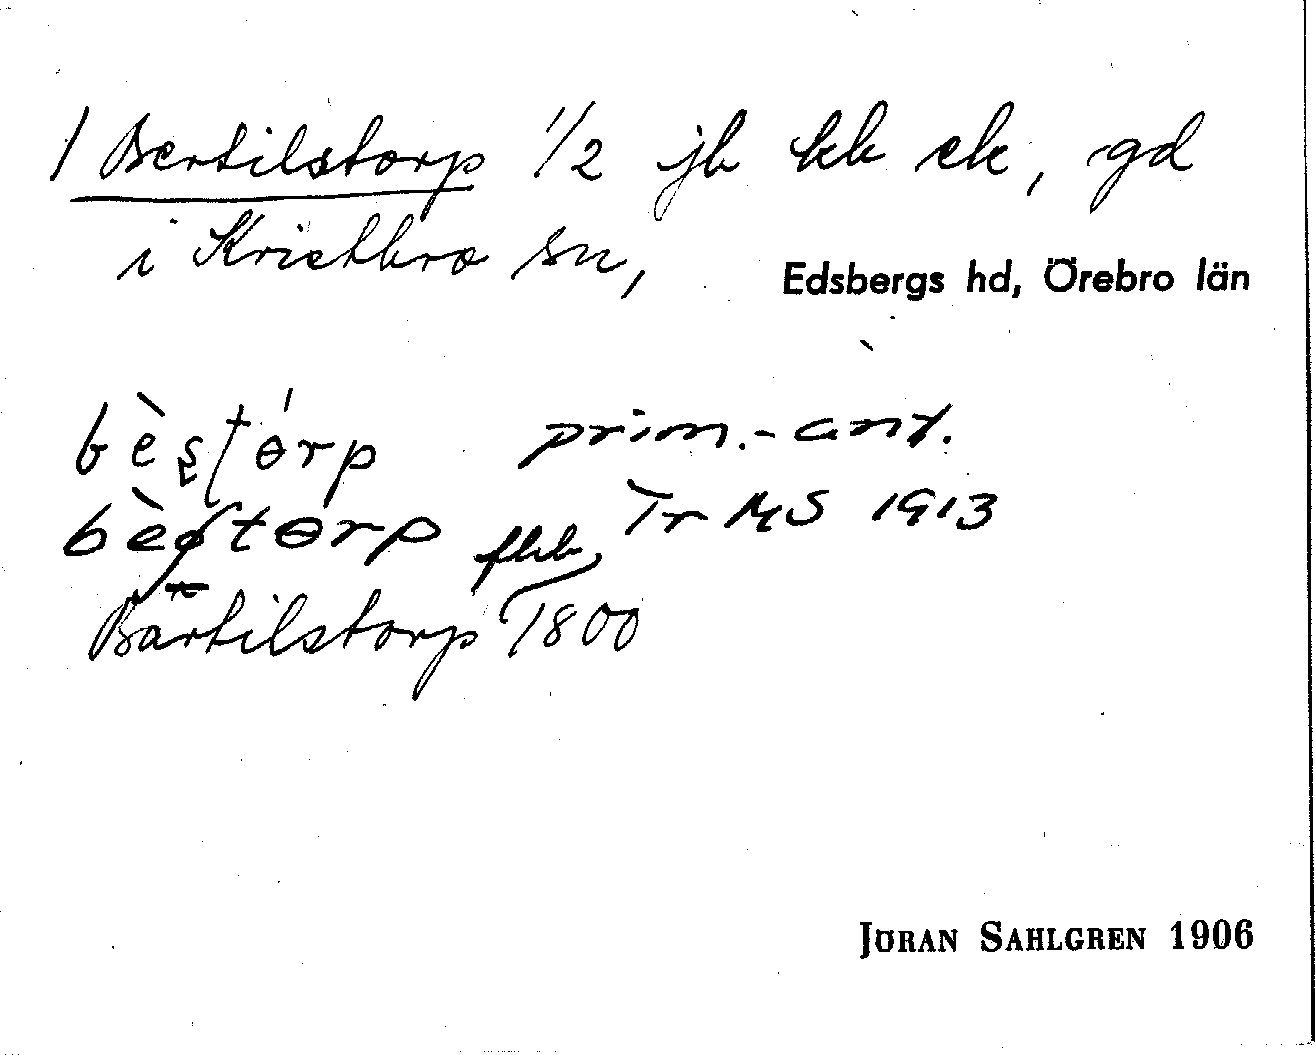 / Bertilstorp 1/2 jb kb ek, gd
i Kvistbro sn, Edsbergs hd, Örebro län
bèstɵ́rp prim.-ant.
bèstɵrp Tr MS 1913
Bärtilstorp 1800
JÖRAN SAHLGREN 1906